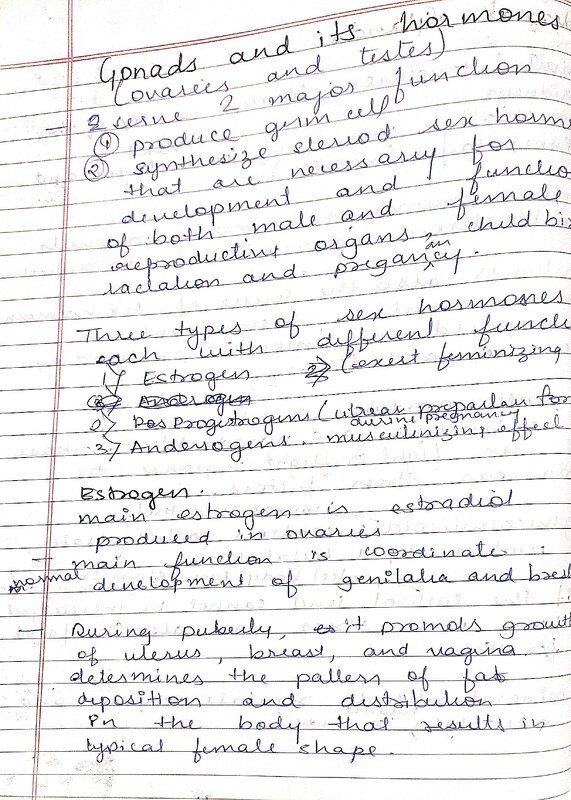 Gonads and its hormones
(ovaries and testes)
— 2 serve 2 major function
① produce germ cell
② synthesize steriod sex horm
that are necessary for
development and functio
of both male and female
reproductive organs, child bi
lactation and preganancy.
Three types of sex hormones
each with different funct
1) Estrogen 2) (exert feminizing
2) Progestrogens (uterus preparation for
during pregnancy
3) Anderogens. musculinizing effect
Estrogen.
main estrogen is estradiol
produced in ovaries
— main function is coordinate
normal development of genitalia and brest
— During puberty, it promots growth
of uterus, breast, and vagina.
determines the pattern of fat
deposition and distribution
in the body that results in
typical female shape.